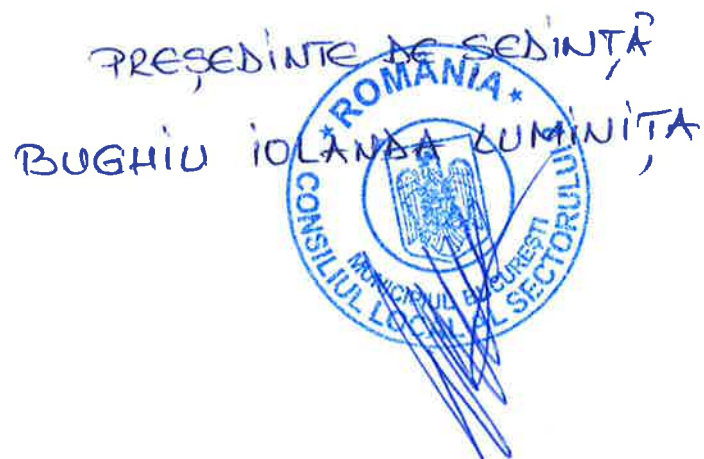 PREȘEDINTE DE SEDINȚĂ
BUGHIU IOLANDA LUMINIȚA
* ROMÂNIA *
CONSILIUL LOCAL AL SECTORULUI
MUNICIPIUL BUCUREȘTI